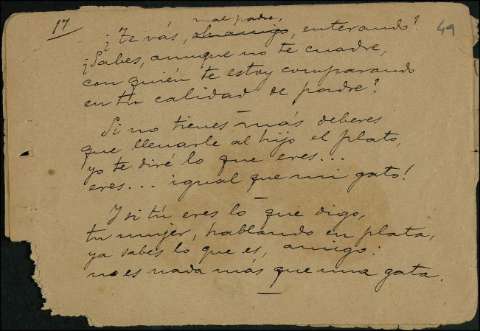 17
49
mal padre,
¿Te vás, enterando?
¿Sabes, aunque no te cuadre,
con quién te estoy comparando
en tu calidad de padre?
Si no tienes más deberes
que llenarle al hijo el plato,
yo te diré lo que eres...
eres... igual que mi gato!
Y si tú eres lo que digo,
tu mujer, hablando en plata,
ya sabes lo que es, amigo:
no es nada más que una gata.